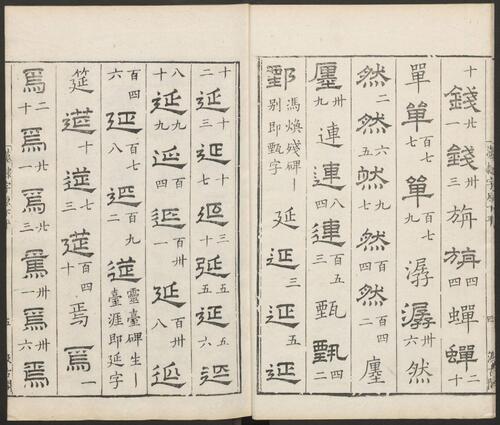 十錢廿錢卅三旃旃四四蟬蟬二十
單單百七七單百七九潺潺卅六然
然二然六九然九七然百四然百四二廛
廛卅九連連八四連百五三甄甄四二
鄄馮煥殘碑｜別即甄字延延三延五延
十二延十三延十七延十三延五五延
八十延九九延百四延百卅一延百卅八延
百四六延百七八延百九二莚靈臺碑生｜臺涯即延字
筵筵十筵十七三筵百四十焉焉一
焉二十焉廿一焉廿三焉卅一焉卅六焉